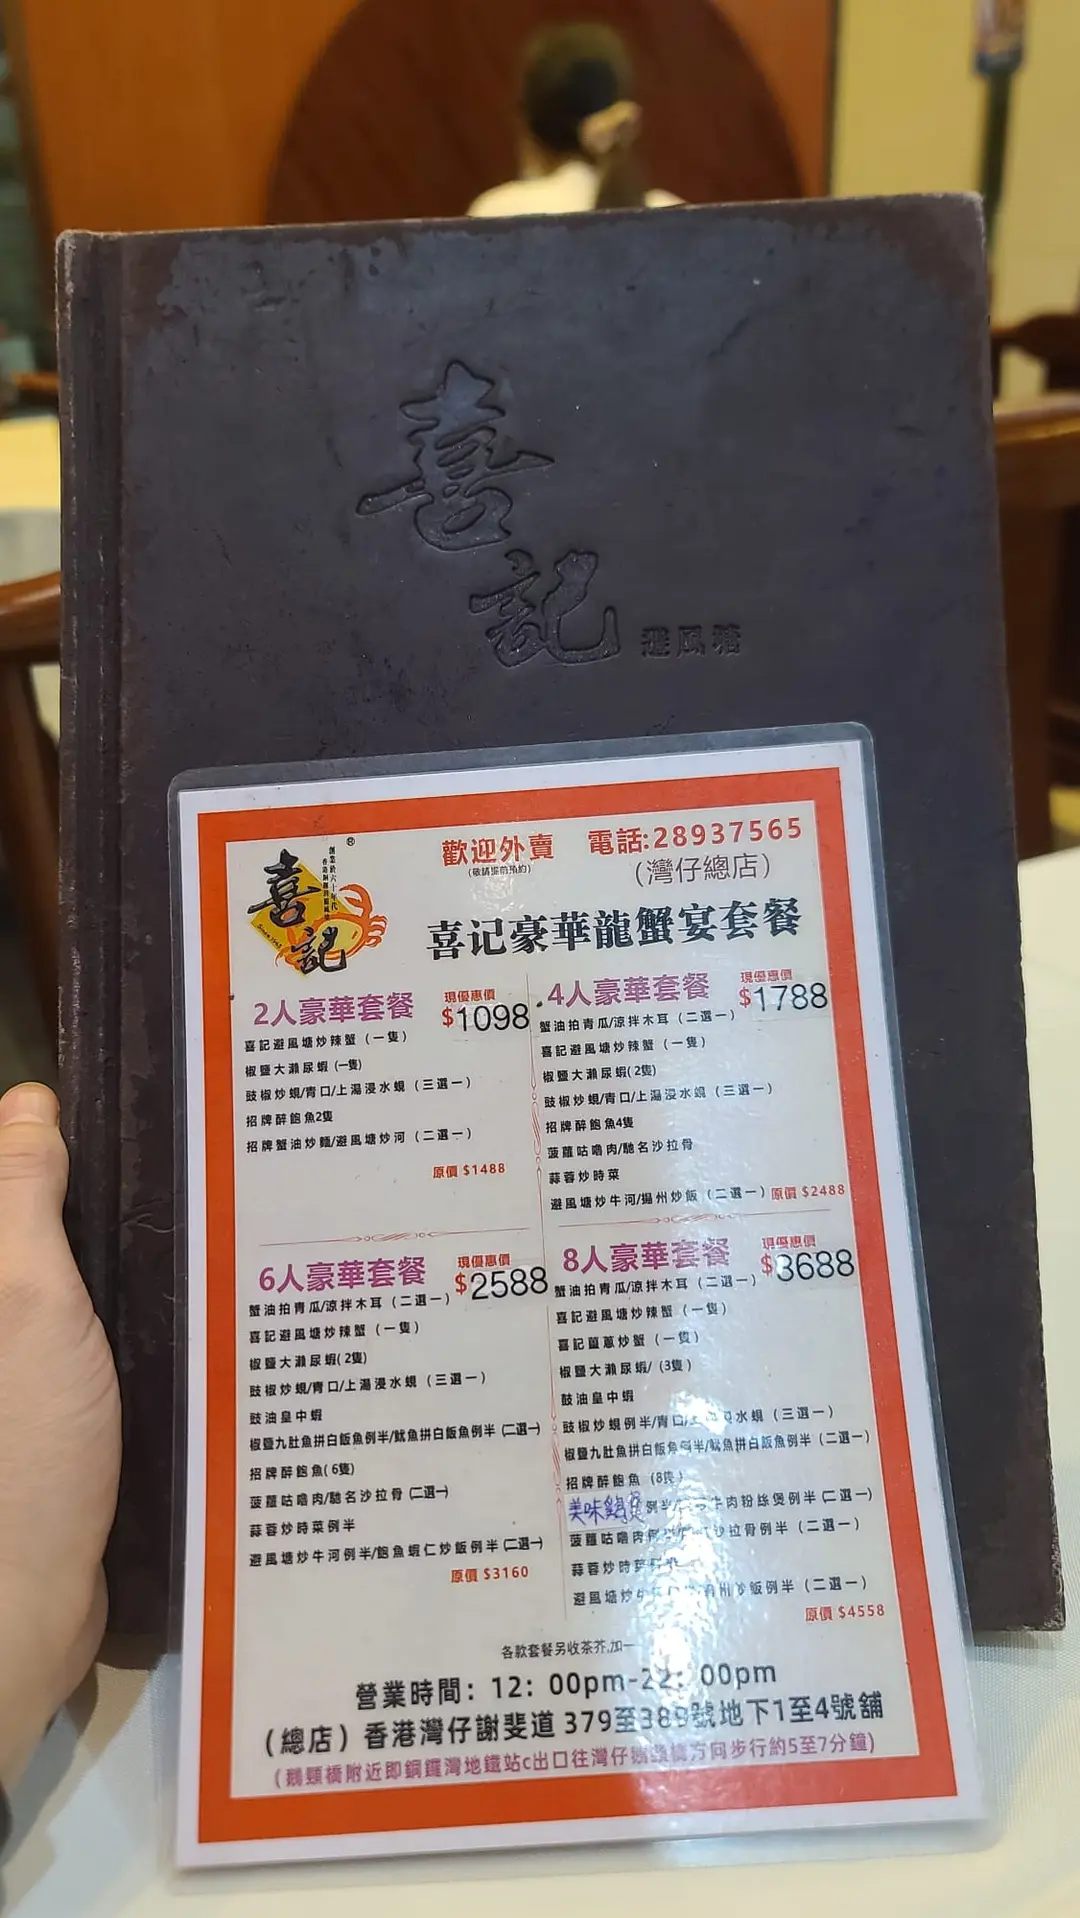 喜記
避風塘
喜記
®
創業於六十年代
Since 1965
歡迎外賣
(敬請提前預約)
電話:28937565
(灣仔總店)
喜记豪華龍蟹宴套餐
2人豪華套餐
現優惠價
$1098
喜記避風塘炒辣蟹 (一隻)
椒鹽大瀨尿蝦 (一隻)
豉椒炒蜆/青口/上湯浸水蜆 (三選一)
招牌醉鮑魚2隻
招牌蟹油炒麵/避風塘炒河 (二選一)
原價 $1488
4人豪華套餐
現優惠價
$1788
蟹油拍青瓜/涼拌木耳 (二選一)
喜記避風塘炒辣蟹 (一隻)
椒鹽大瀨尿蝦(2隻)
豉椒炒蜆/青口/上湯浸水蜆 (三選一)
招牌醉鮑魚4隻
菠蘿咕嚕肉/馳名沙拉骨
蒜蓉炒時菜
避風塘炒牛河/揚州炒飯 (二選一) 原價 $2488
6人豪華套餐
現優惠價
$2588
蟹油拍青瓜/涼拌木耳 (二選一)
喜記避風塘炒辣蟹 (一隻)
椒鹽大瀨尿蝦(2隻)
豉椒炒蜆/青口/上湯浸水蜆 (三選一)
鼓油皇中蝦
椒鹽九肚魚拼白飯魚例半/魷魚拼白飯魚例半 (二選一)
招牌醉鮑魚(6隻)
菠蘿咕嚕肉/馳名沙拉骨 (二選一)
蒜蓉炒時菜例半
避風塘炒牛河例半/鮑魚蝦仁炒飯例半 (二選一)
原價 $3160
8人豪華套餐
現優惠價
$3688
蟹油拍青瓜/涼拌木耳 (二選一)
喜記避風塘炒辣蟹 (一隻)
喜記薑蔥炒蟹 (一隻)
椒鹽大瀨尿蝦/ (3隻)
鼓油皇中蝦
豉椒炒蜆例半/青口/上 水蜆 (三選一)
椒鹽九肚魚拼白飯魚例半/魷魚拼白飯魚例半 (二選一)
招牌醉鮑魚 (8隻)
美味 例半/ 牛肉粉絲煲例半 (二選一)
菠蘿咕嚕肉 沙拉骨例半 (二選一)
蒜蓉炒時菜
避風塘炒牛 州炒飯例半 (二選一)
原價 $4558
各款套餐另收茶芥,加一
營業時間: 12: 00pm-22: 00pm
(總店) 香港灣仔謝斐道 379至389號地下1至4號舖
(鵝頸橋附近即銅鑼灣地鐵站c出口往灣仔鵝頸橋方向步行約5至7分鐘)